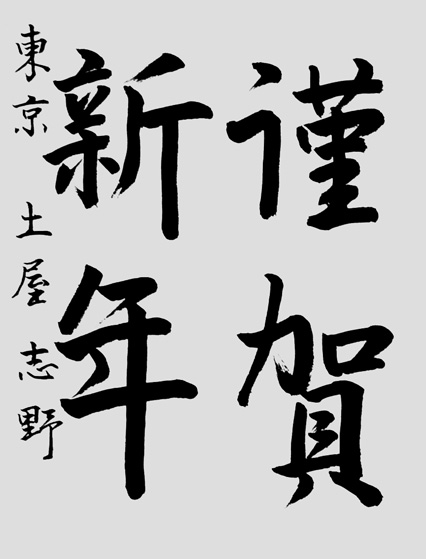 謹賀
新年
東京 土屋志野